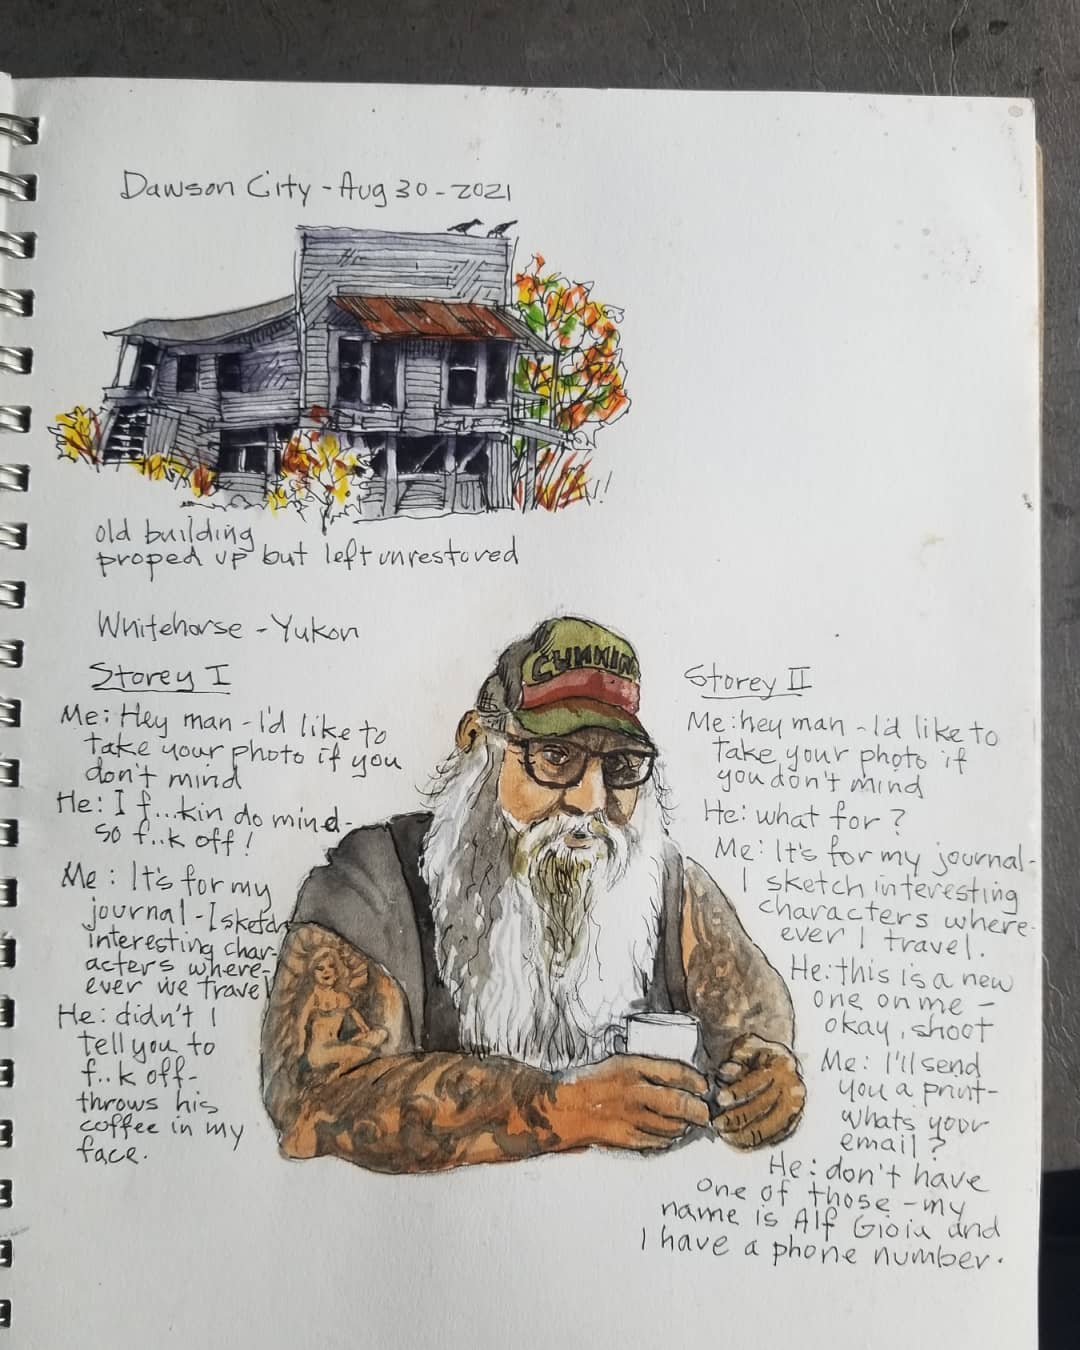 Dawson City - Aug 30 - 2021
old building
proped up but left unrestored
Whitehorse - Yukon
Storey I
Me: Hey man - I'd like to
take your photo if you
don't mind
He: I f...kin do mind -
so f..k off!
Me: It's for my
journal - I sketch
interesting char-
acters where-
ever we travel
He: didn't I
tell you to
f..k off -
throws his
coffee in my
face.
CUMMIN
Storey II
Me: hey man - I'd like to
take your photo if
you don't mind
He: what for?
Me: It's for my journal -
I sketch interesting
characters where-
ever I travel.
He: this is a new
one on me -
okay, shoot
Me: I'll send
you a print -
whats your
email?
He: don't have
one of those - my
name is Alf Gioia and
I have a phone number.